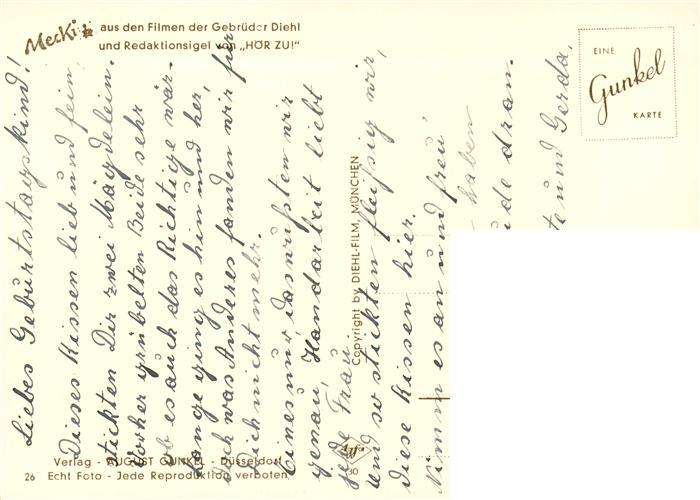 Mecki aus den Filmen der Gebrüder Diehl
und Redaktionsigel von „HÖR ZU!"
EINE
Gunkel
KARTE
Liebes Geburtstagskind!
Dieses Kissen lieb und fein,
stickten Dir zwei Mägdelein.
Vorher grübelten Beide sehr
ob es auch das Richtige wär.
Lange ging es hin und her,
doch was Anderes fanden wir für
Dich nicht mehr.
Eines nur, das wußten wir
genau, Handarbeit liebt
jede Frau.
Und so stickten fleißig wir,
diese Kissen hier.
Nimm es an und freu'
haben
ude dran.
te und Gerda.
Copyright by DIEHL-FILM, MÜNCHEN
Agfa
30
Verlag - AUGUST GUNKEL - Düsseldorf
26 Echt Foto - Jede Reproduktion verboten